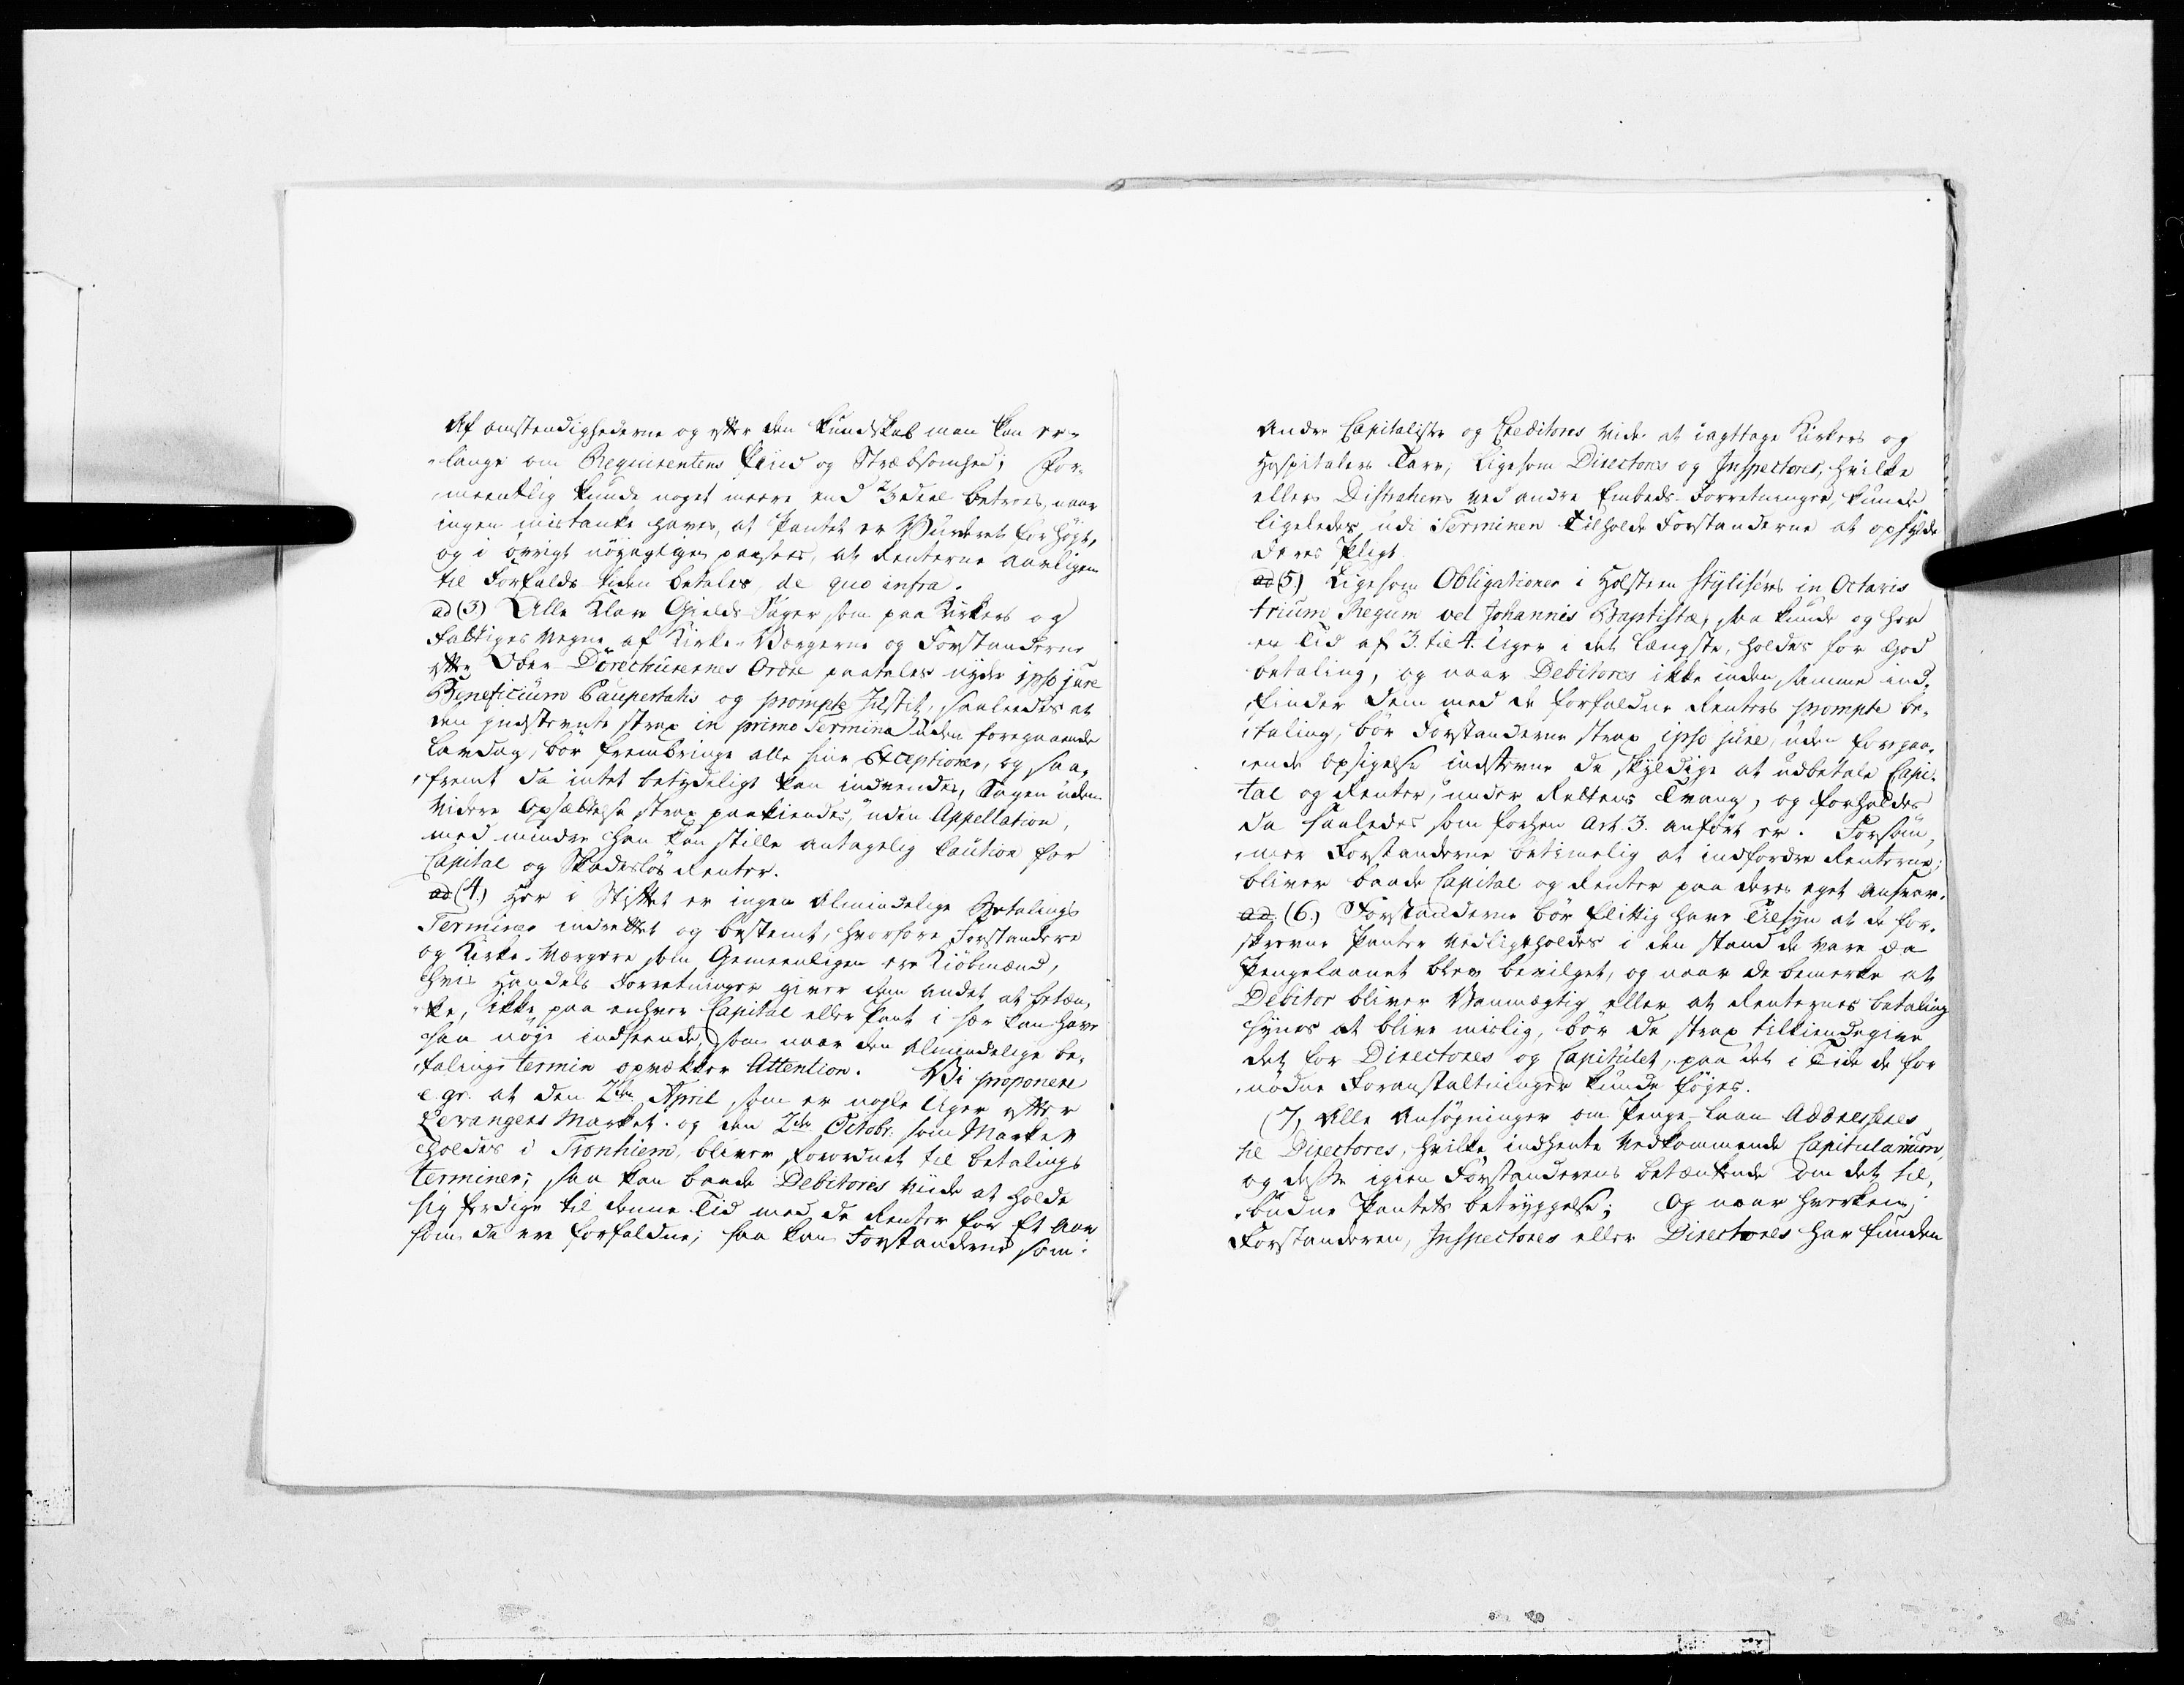 Af omstendighederne og efter den Kundskab man kan er-
lange om Requirentens Flid og Stræbsomhed; for-
meentlig kunde noget meere end 2/3 deel betroes, naar
ingen mistanke haves, at Pantet er Vurderet for høyt,
og i øvrigt nöyagtigen paasees, at Renterne aarligen
til Forfalds tiden betales, de quo infra.
ad (3) Alle Klare Gields Sager som paa Kirkers og
Fattiges Vegne af Kirke-Værgerne og Forstanderne
efter Ober Directeurernes Ordre paatales nyde ipso jure
Beneficium Paupertatis og prompte Justits, saaledes at
den indstevnte strax in primo Termino uden foregaaende
Lavdag, bör frembringe alle sine Exceptioner, og saa-
fremt da intet betydeligt kan indvendes, Sagen uden
videre Opsættelse strax paakiendes, uden Appellation,
med mindre han kan stille antagelig Caution for
Capital og Skadeslös Renter.
ad (4.) Her i Stiftet er ingen Almindelige Betalings
Terminer indrettet og bestemt, hvorfore Forstandere
og Kirke-Værgere som Gemeenligen ere Kiöbmænd,
hvis Handels Forretninger giver dem andet at betæn-
ke, ikke paa enhver Capital eller Pant i sær kan have
saa nöye indseende, som naar den Almindelige be-
talings termin opvækker Attention. Vi proponere
e. gr. at den 2den April, som er nogle Uger efter
Levangers Marked og den 2de Octobr: som Market
holdes i Tronhiem, bliver forordnet til betalings
terminer; saa kan baade Debitores viide at holde
sig ferdige til denne Tid med de Renter for Et Aar
som da ere forfaldne; saa kan Forstanderne som
Andre Capitalister og Creditores vide at iagttage Kirkers og
Hospitalers Tarv, ligesom Directores og Inspectores, hvilke
ellers Distraheres ved andre Embeds-Forretninger, kunde
ligeledes udi Terminen tilholde Forstanderne at opfylde
deres Pligt.
ad (5) Ligesom Obligationer i Holsteen styliseres in Octavis
trium Regum vel Johannis Baptistæ, saa kunde og her
en Tid af 3 til 4 Uger i det længste, holdes for God
betaling, og naar Debitores ikke inden samme ind-
finder dem med de forfaldne Renters prompte be-
taling, bör Forstanderne strax ipso jure, uden foregaa-
ende opsigelse indstevne de skyldige at udbetale Capi-
tal og Renter, under Rettens Tvang, og forholdes
da saaledes som forhen Art. 3. anfört er. Forsöm-
mer Forstanderne betimelig at indfordre Renterne;
bliver baade Capital og Renter paa deres eget Ansvar.
ad (6.) Forstanderne bör flittig have Tilsyn at de for-
skrevne Panter vedligeholdes i den stand de vare da
Pengelaanet blev bevilget, og naar de bemerke at
Debitor bliver Vanmægtig eller at Renternes betaling
synes at blive mislig, bör de strax tilkiendegive
det for Directores og Capitulet, paa det i Tide de for
nödne Foranstaltninger kunde föyes.
(7, Alle Ansögninger om Penge-Laan Addresseres
til Directores, hvilke indhente vedkommende Capitularium,
og disse igien Forstanderens betænkende om det til-
budne Pantets betryggelse; Og naar hverken
Forstanderen, Inspectores eller Directores har funden